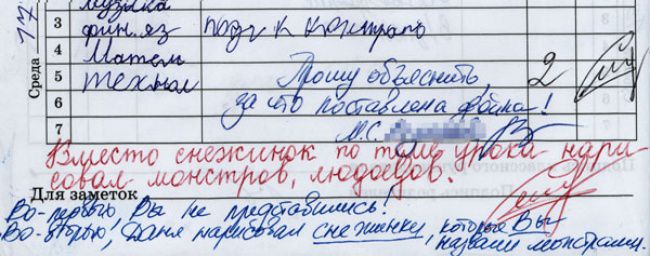 Среда 17
музыка
3 фин. яз подг к контроль
4 Матем
5 технол Прошу объяснить, 2
6 за что поставлена двойка!
7 М.С.
Вместо снежинок по теме урока нари-
совал монстров, людоедов.
Для заметок
Во-первых, Вы не представились!
Во-вторых, Даня нарисовал снежинки, которые Вы
назвали монстрами.